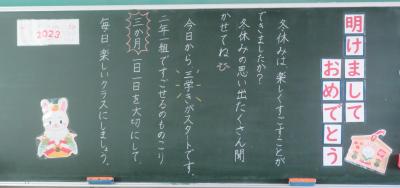 明けまして
おめでとう
冬休みは楽しくすごすことが
できましたか?
冬休みの思い出たくさん聞
かせてね
今日から三学きがスタートです。
二年一組ですごせるのものこり
三か月、一日一日を大切にして、
毎日楽しいクラスにしましょう。
2023